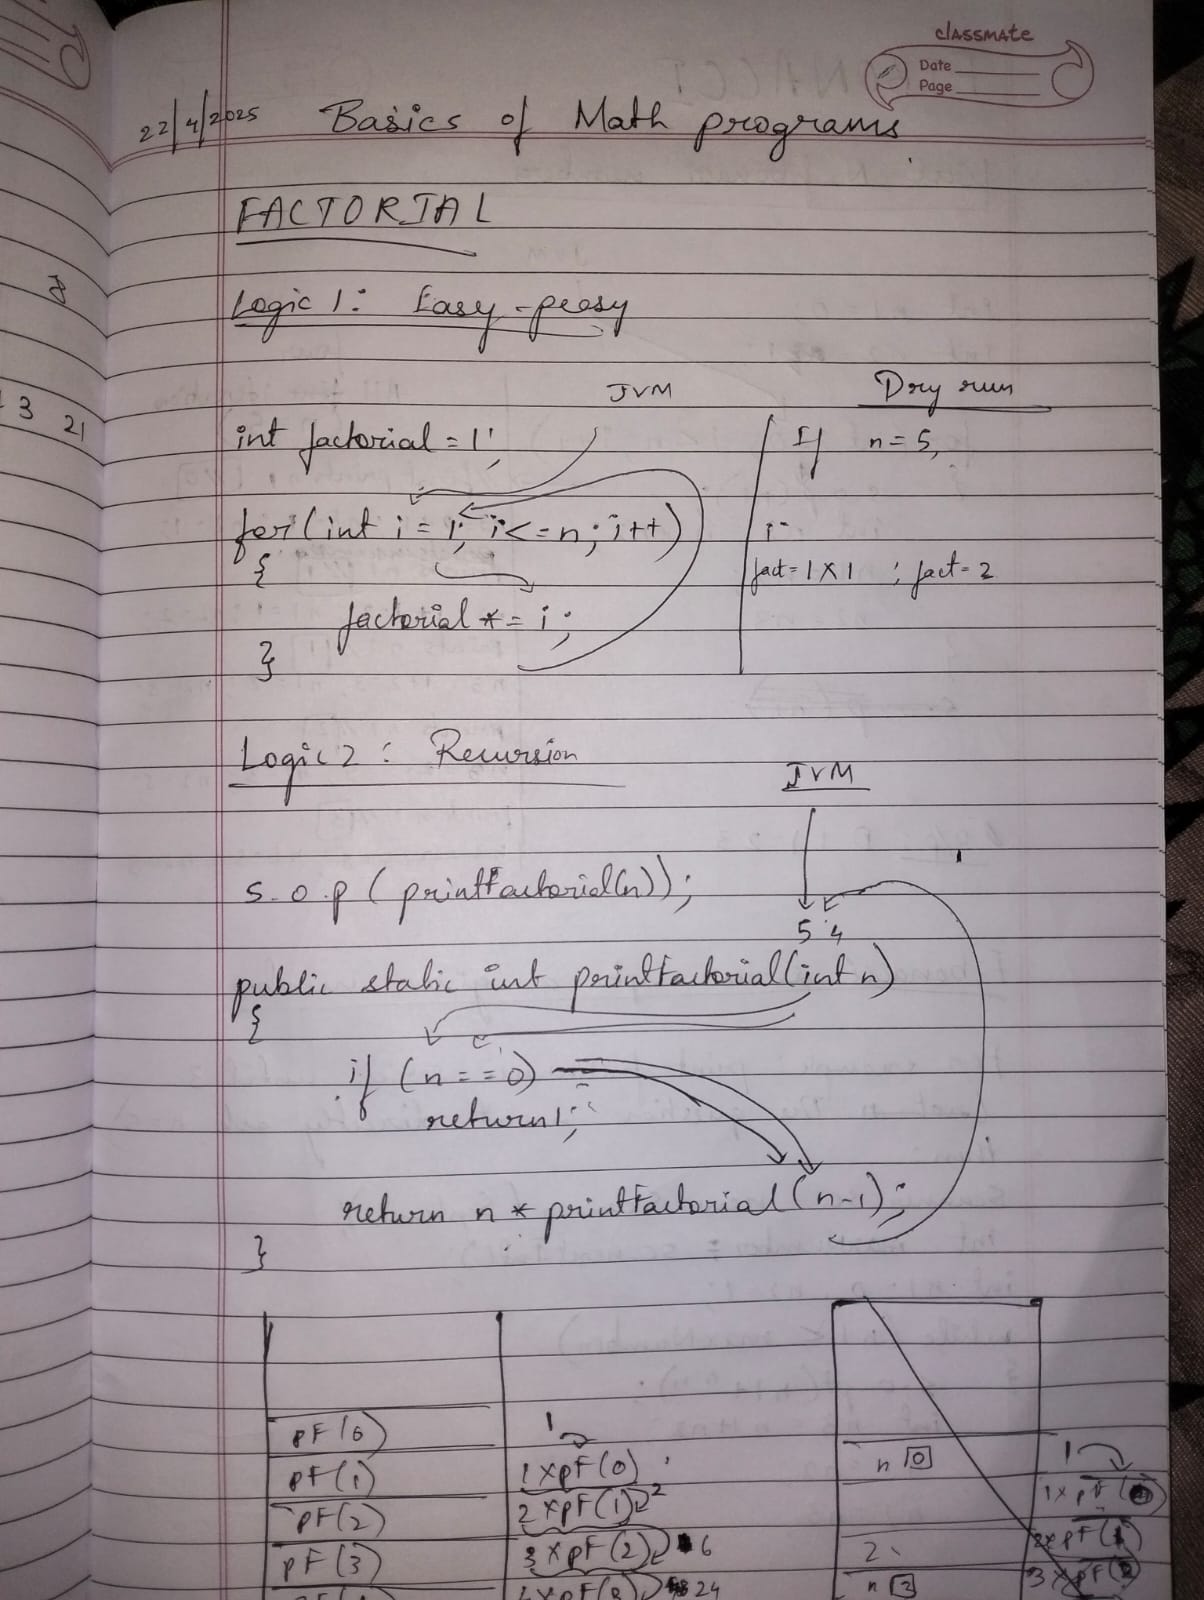 classmate
Date
Page
22/4/2025 Basics of Math programs
FACTORIAL
Logic 1: Easy-peasy
JVM
Dry run
int factorial = 1;
If n = 5,
for(int i = 1; i<=n; i++)
i
{
fact = 1 X 1 ; fact = 2
factorial *= i;
}
Logic 2 : Recursion
JVM
S.O.P ( printFactorial(n));
5 4
public static int printFactorial(int n)
{
if (n==0)
return 1;
return n * printFactorial(n-1);
}
8
3 21
PF(0)
PF(1)
PF(2)
PF(3)
1
1 x PF(0)
2 x PF(1) 2
3 x PF(2) 6
4 x PF(3) 24
n 0
2
n 3
1
1 x PF
2 x PF(1)
3 x PF(2)